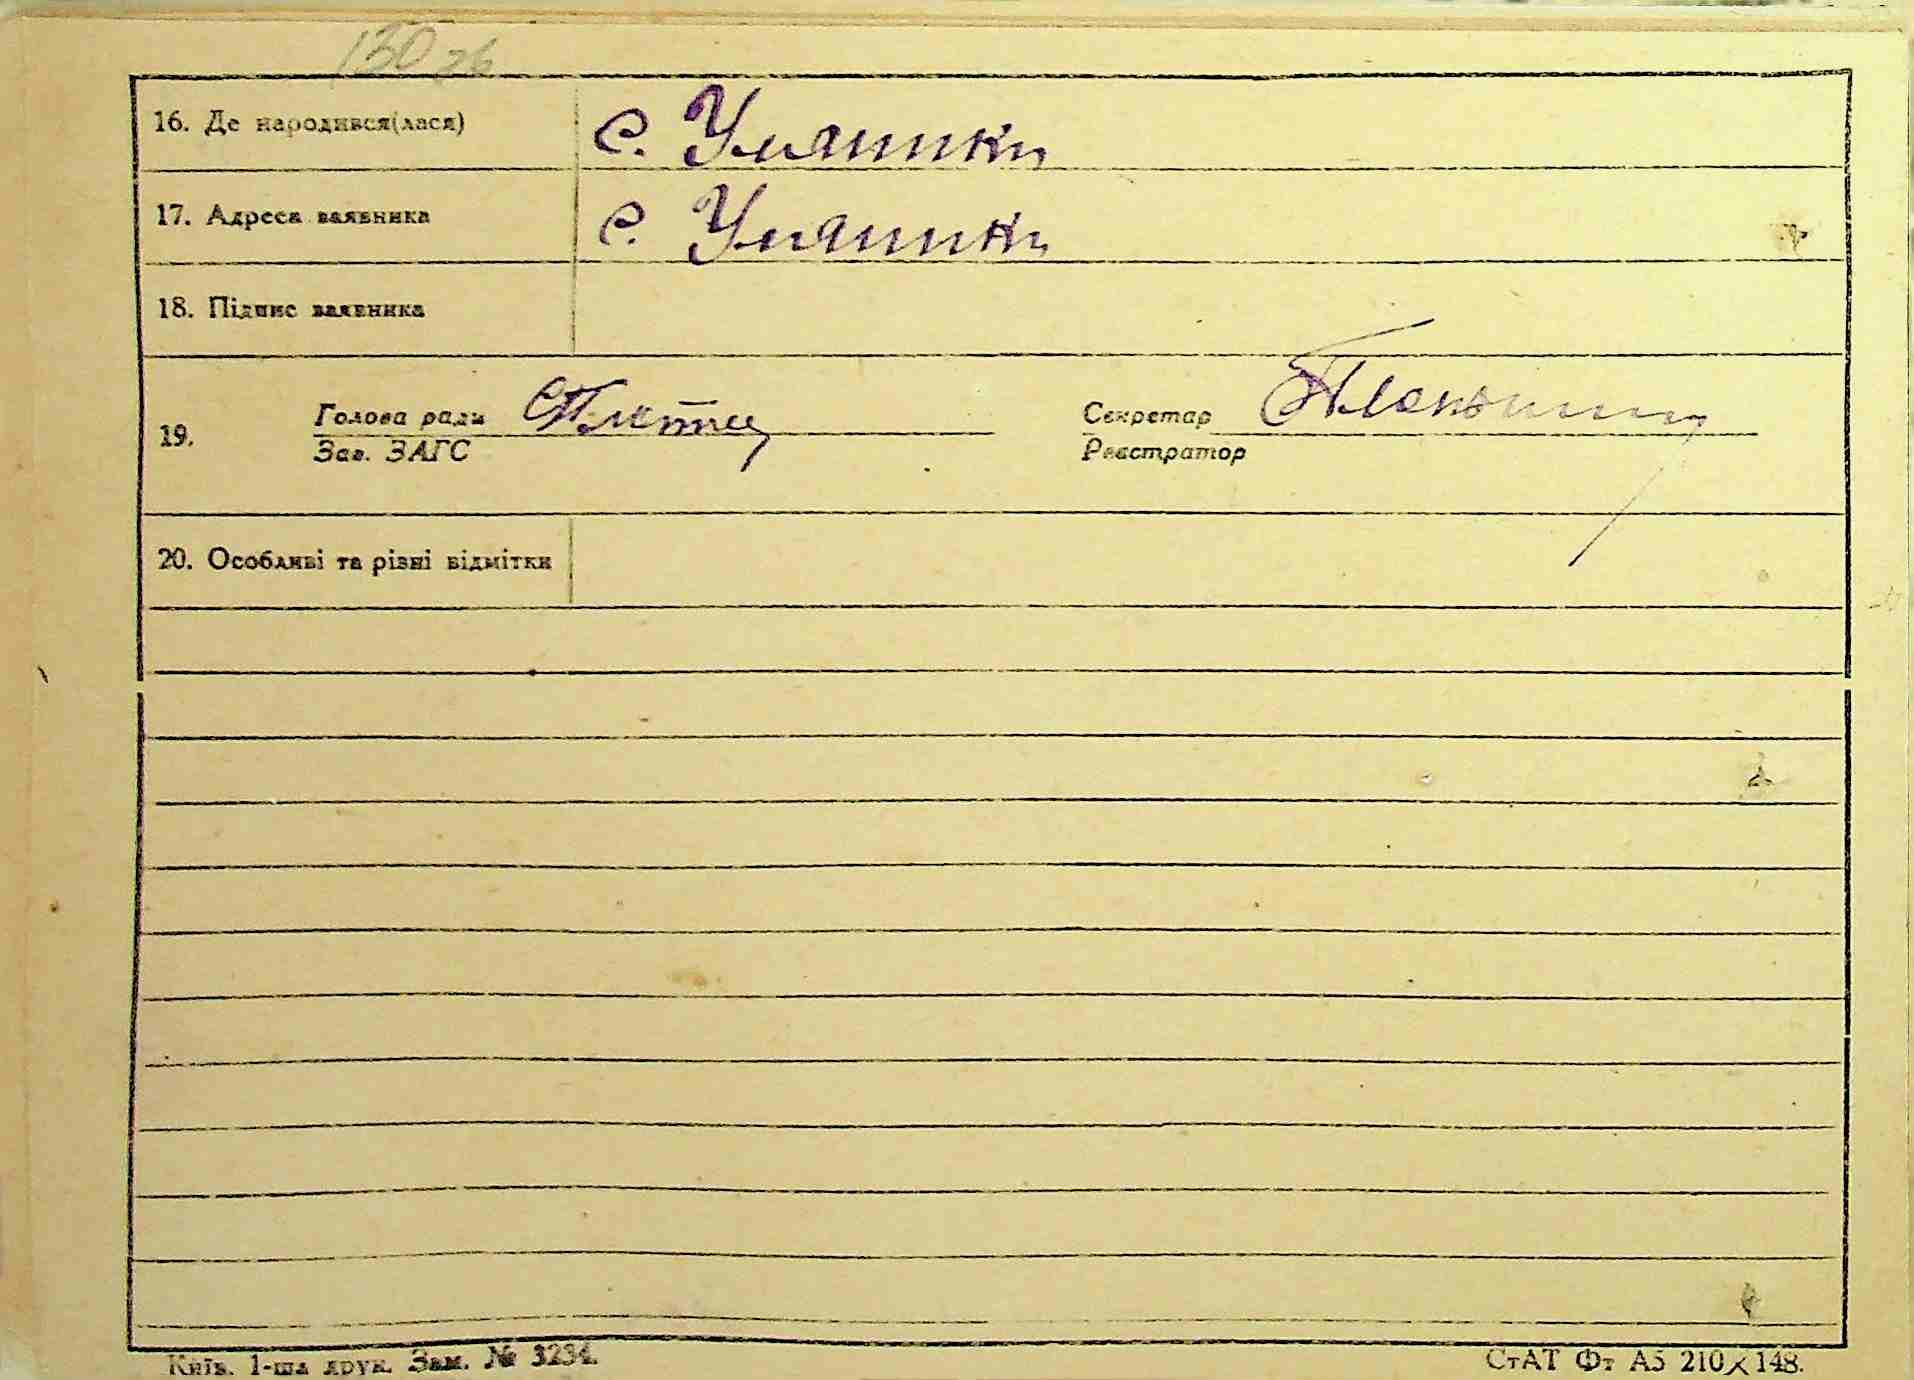 130 зв
16. Де народився(лася) с. Уляники
17. Адреса заявника с. Уляники
18. Підпис заявника
19. Голова ради Секретар
Зав. ЗАГС Реєстратор
20. Особливі та різні відмітки
Київ. 1-ша друк. Зам. № 3234. СтАТ Фт А5 210×148.